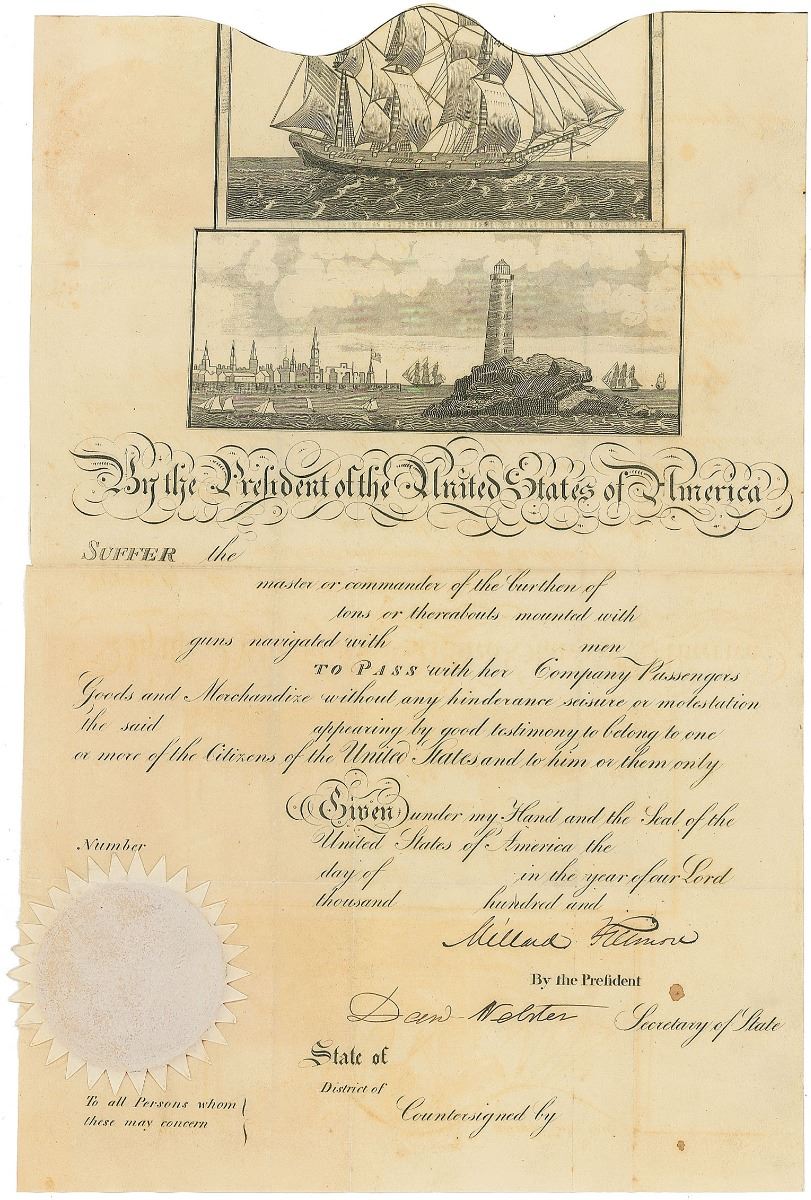 By the President of the United States of America
SUFFER the
master or commander of the burthen of
tons or thereabouts mounted with
guns navigated with men
TO PASS with her Company Passengers
Goods and Merchandize without any hinderance seisure or molestation
the said appearing by good testimony to belong to one
or more of the Citizens of the United States and to him or them only
Given under my Hand and the Seal of the
United States of America the
Number
day of in the year of our Lord
thousand hundred and
Millard Fillmore
By the President
Dan Webster Secretary of State
State of
District of
To all Persons whom
these may concern
Countersigned by